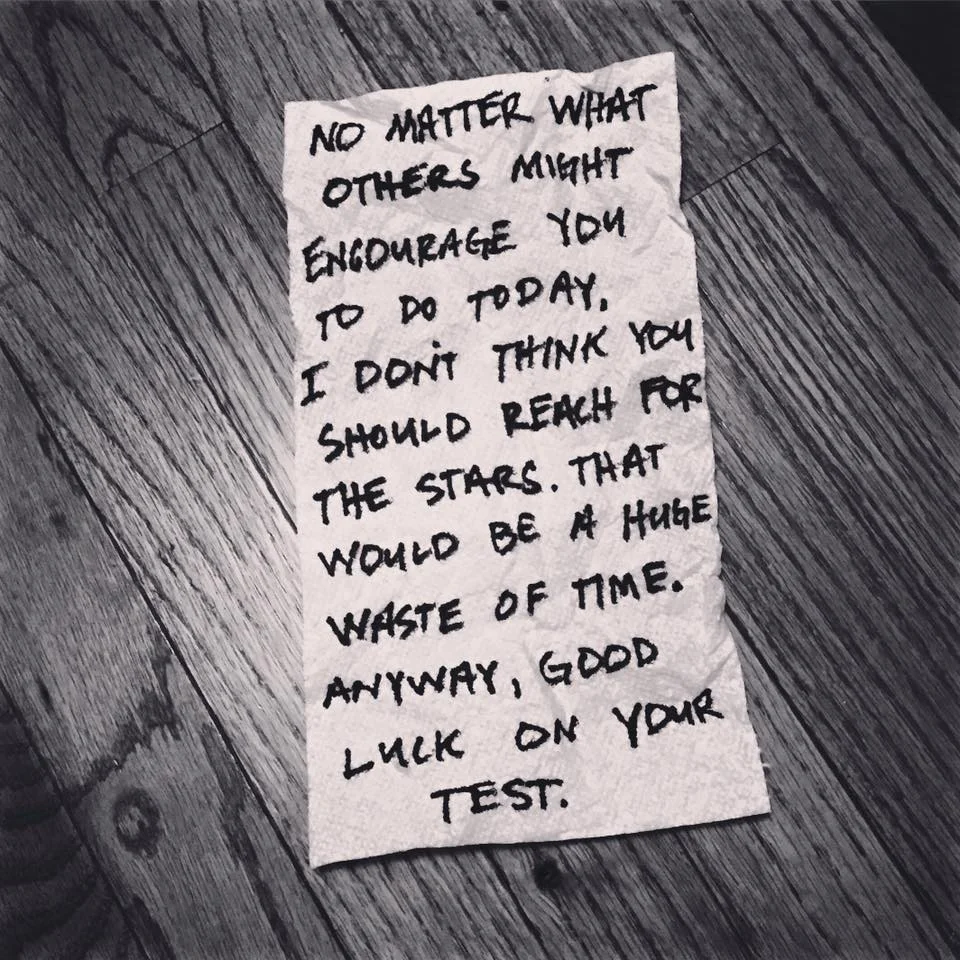 NO MATTER WHAT
OTHERS MIGHT
ENCOURAGE YOU
TO DO TODAY,
I DON'T THINK YOU
SHOULD REACH FOR
THE STARS. THAT
WOULD BE A HUGE
WASTE OF TIME.
ANYWAY, GOOD
LUCK ON YOUR
TEST.